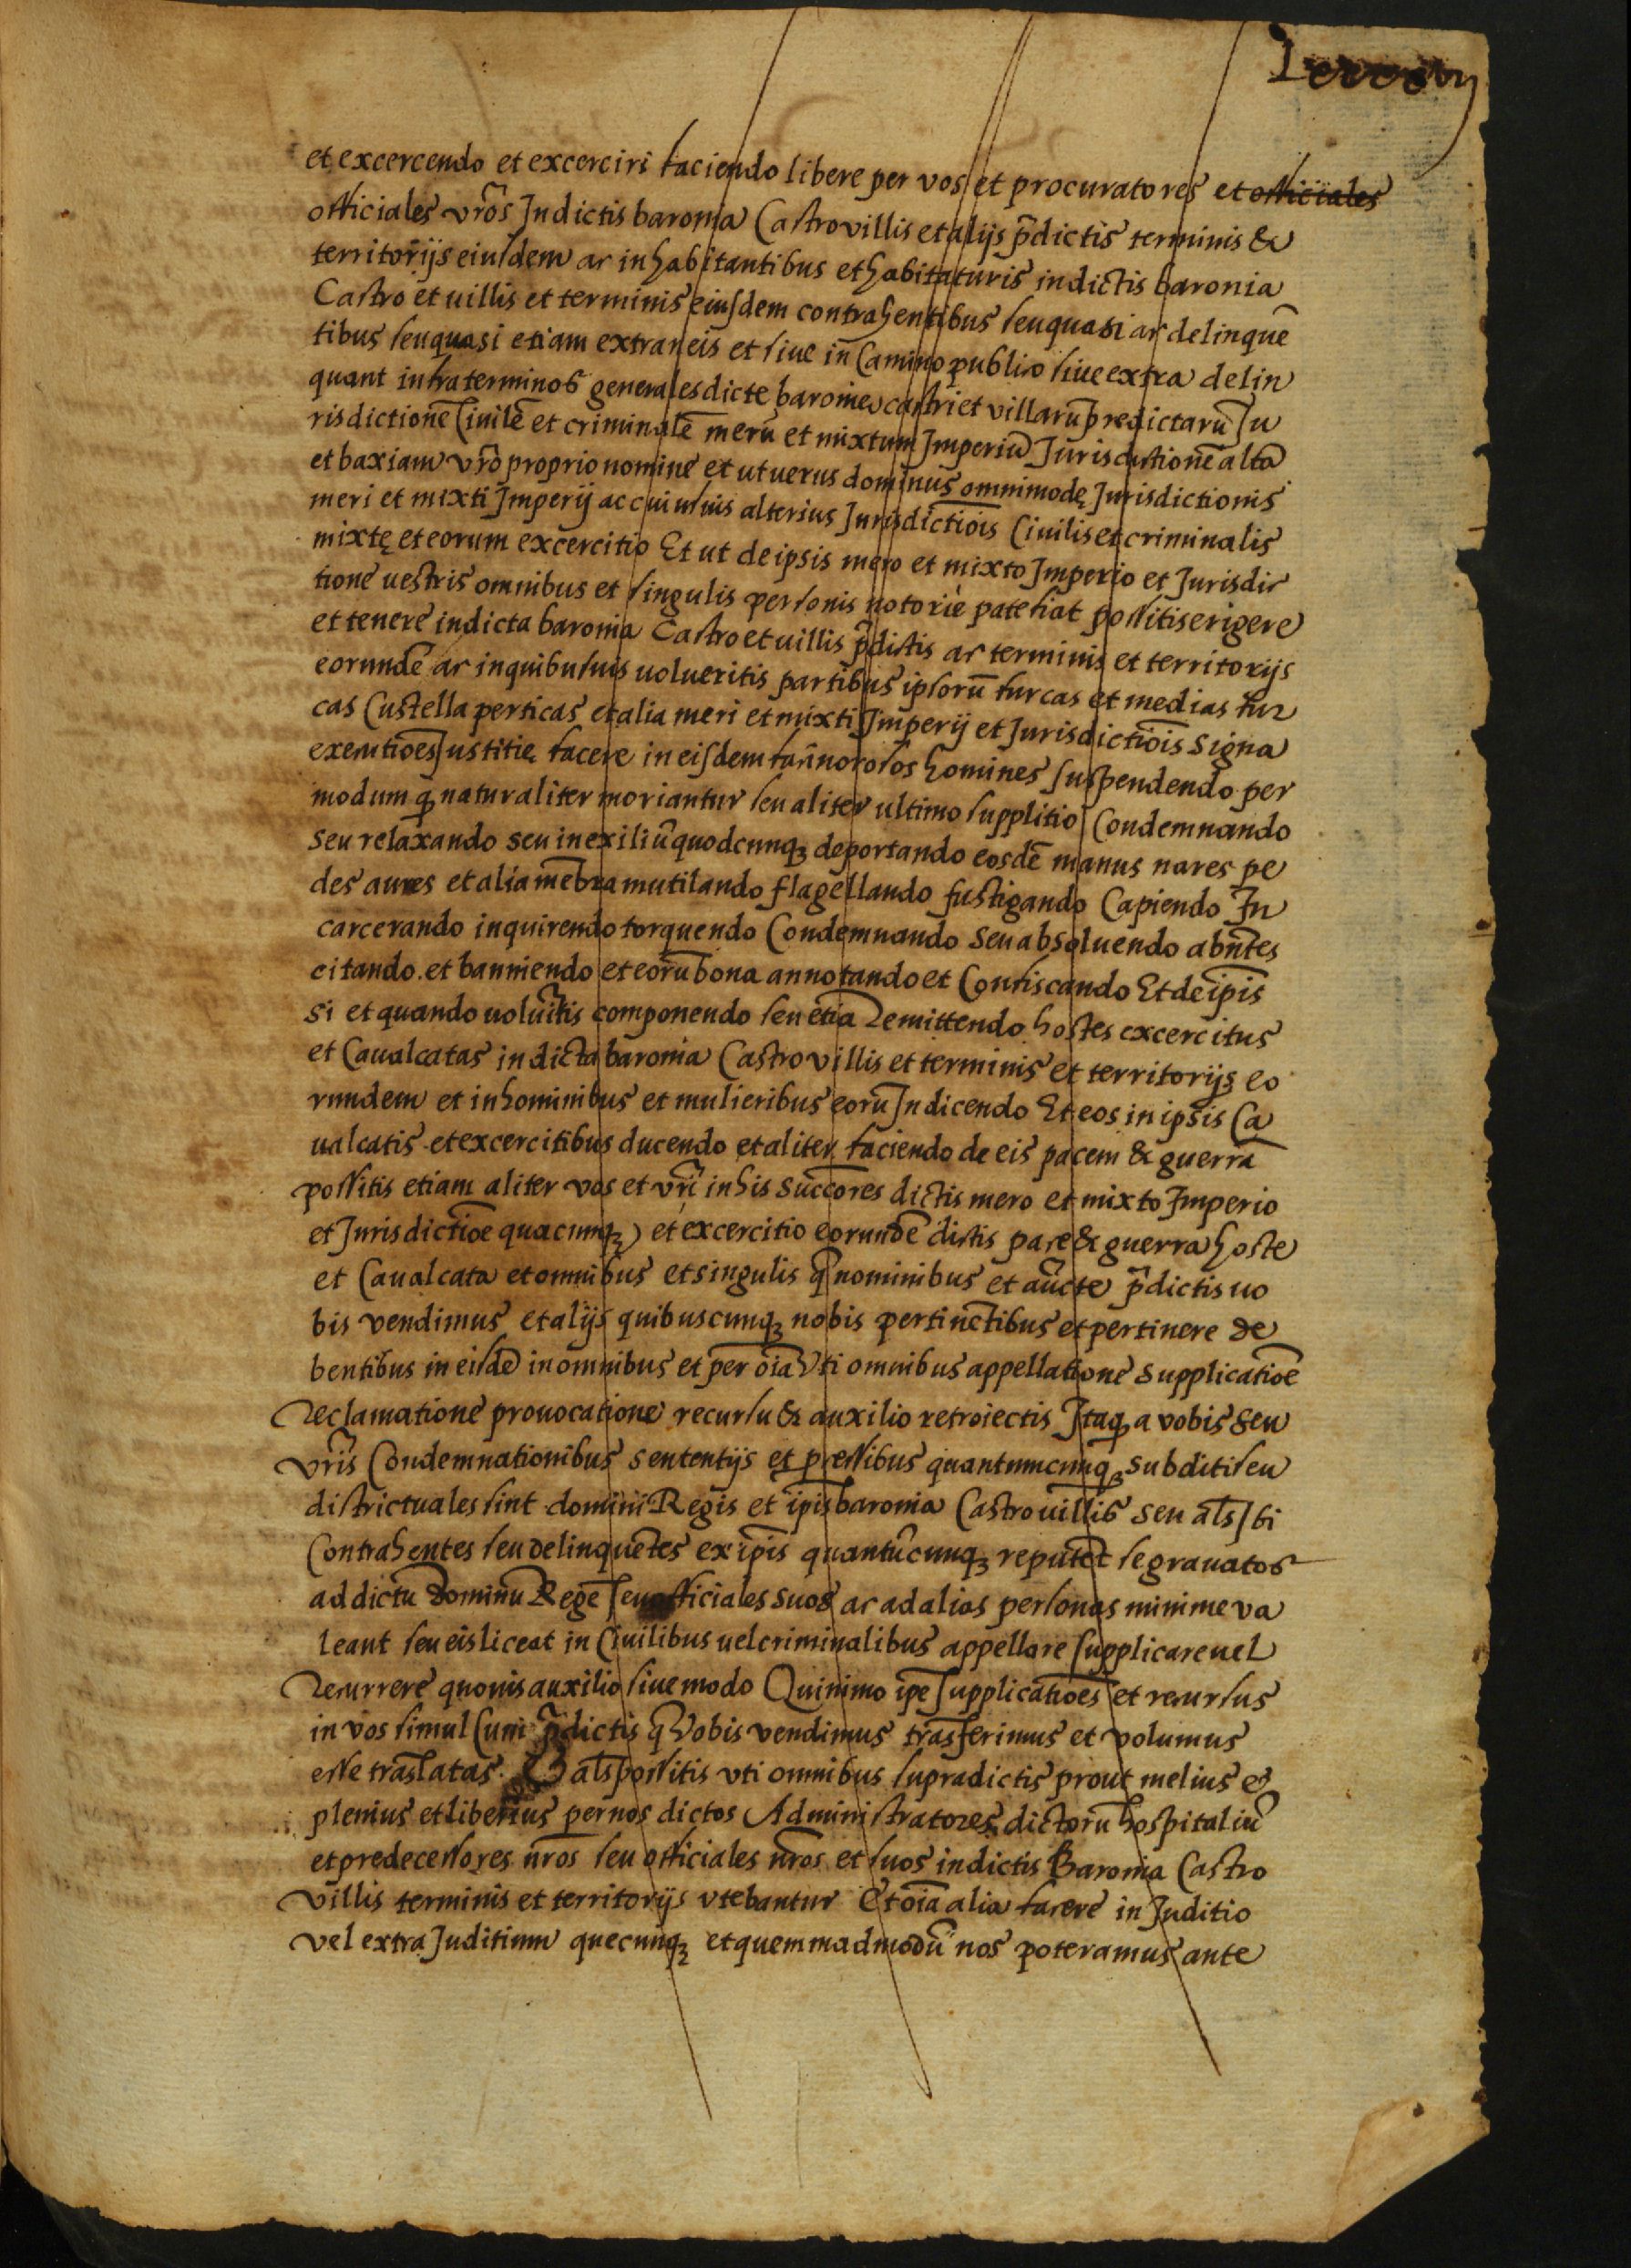 et excercendo et excerciri faciendo libere per vos et procuratores et officiales
officiales vr̃os Indictis baronia Castro villis et alijs p̃dictis terminis &
territorijs eiusdem ac inhabitantibus et habitaturis in dictis baronia
Castro et uillis et terminis eiusdem contrahentibus seu quasi ac delinquẽ
tibus seu quasi etiam extraneis et siue in Camino publico siue extra delin
quant infra terminos generales dicte baronie castri et villarũ predictarũ Ju
risdictionẽ Ciuilẽ et criminalẽ merũ et mixtum Imperiũ Jurisdictionẽ altã
et baxiam vrõ proprio nomine et ut uerus dominus omnimodę Jurisdictionis
meri et mixti Imperij ac cuiusuis alterius Jurisdictiõis Ciuilis et criminalis
mixtę et eorum excercitio Et ut de ipsis mero et mixto Imperio et Jurisdic
tione uestris omnibus et singulis personis notorie patefiat possitis erigere
et tenere in dicta baronia Castro et uillis p̃dictis ac terminis et territorijs
eorundẽ ac in quibusuis uolueritis partibus ipsorũ furcas et medias fur
cas Custella perticas et alia meri et mixti Imperij et Jurisdictiõis signa
executiões Justitię facere in eisdem facinorosos homines suspendendo per
modum q̃ naturaliter moriantur seu aliter ultimo supplitio Condemnando
seu relaxando seu in exiliũ quodcunq; deportando eosdẽ manus nares pe
des aures et alia mẽbra mutilando flagellando fustigando Capiendo In
carcerando inquirendo torquendo Condemnando seu absoluendo abñtes
citando et banniendo et eorũ bona annotando et Confiscando Et de ip̃is
si et quando uoluĩtis componendo seu etiã Remittendo hostes excercitus
et Caualcatas in dicta baronia Castro villis et terminis et territorijs eo
rundem et in hominibus et mulieribus eorũ Indicendo Et eos in ipsis Ca
ualcatis et excercitibus ducendo et aliter faciendo de eis pacem & guerrã
possitis etiam aliter vos et vr̃i in his succõres dictis mero et mixto Imperio
et Jurisdictiõe quacunq; et excercitio eorundẽ dictis pace & guerra hoste
et Caualcata et omnibus et singulis q̃ nominibus et aũcte p̃dictis uo
bis vendimus et alijs quibuscunq; nobis pertinẽtibus et pertinere de
bentibus in eisdẽ in omnibus et per õia Vti omnibus appellatione supplicatiõe
Reclamatione prouocatione recursu & auxilio retroiectis Itaq; a vobis seu
vr̃is Condemnationibus sententijs et p̃cessibus quantumcunq; subditi seu
districtuales sint dominii Regis et ip̃is baronia Castro uillis seu als Ibi
Contrahentes seu delinquẽtes ex ip̃is quantũcunq; reputẽt se grauatos
ad dictũ Dominũ Regẽ seu officiales suos ac ad alias personas minime va
leant seu eis liceat in Ciuilibus uel criminalibus appellare supplicare uel
Recurrere quouis auxilio siue modo Quinimo ip̃e supplicatiões et recursus
in vos simul Cum p̃dictis q̃ Vobis vendimus trãsferimus et volumus
esse trãslatas. Et als possitis vti omnibus supradictis prout melius &
plenius et liberius per nos dictos Administratores dictorũ hospitaliũ
et predecessores nr̃os seu officiales nr̃os et suos in dictis Baronia Castro
villis terminis et territorijs vtebantur Et õia alia facere in Juditio
vel extra Juditium quecunq; et quemmadmodũ nos poteramus ante